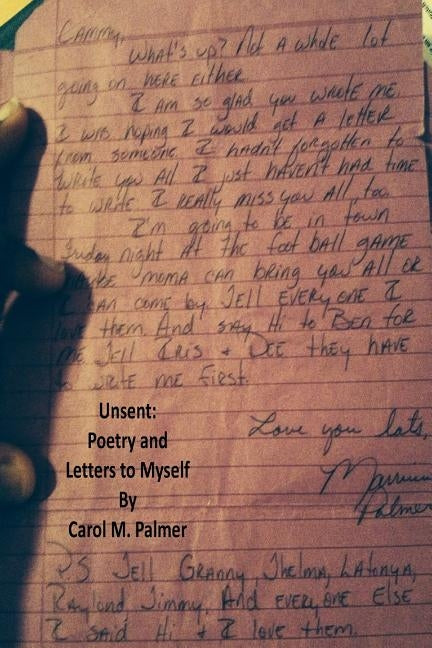 Cammy,
What's up? Not a whole lot
going on here either
I am so glad you wrote me.
I was hoping I would get a letter
from someone. I hadn't forgotten to
write you all I just haven't had time
to write I really miss you all, too.
I'm going to be in town
Friday night at the foot ball game
maybe moma can bring you all or
I can come by Tell everyone I
love them. And say Hi to Ben for
me Tell Iris & Dee they have
to write me first.
Love you lots,
Palmer
Unsent:
Poetry and
Letters to Myself
By
Carol M. Palmer
PS Tell Granny, Thelma, Latonya,
Raylond Jimmy, And everyone else
I said Hi & I love them.